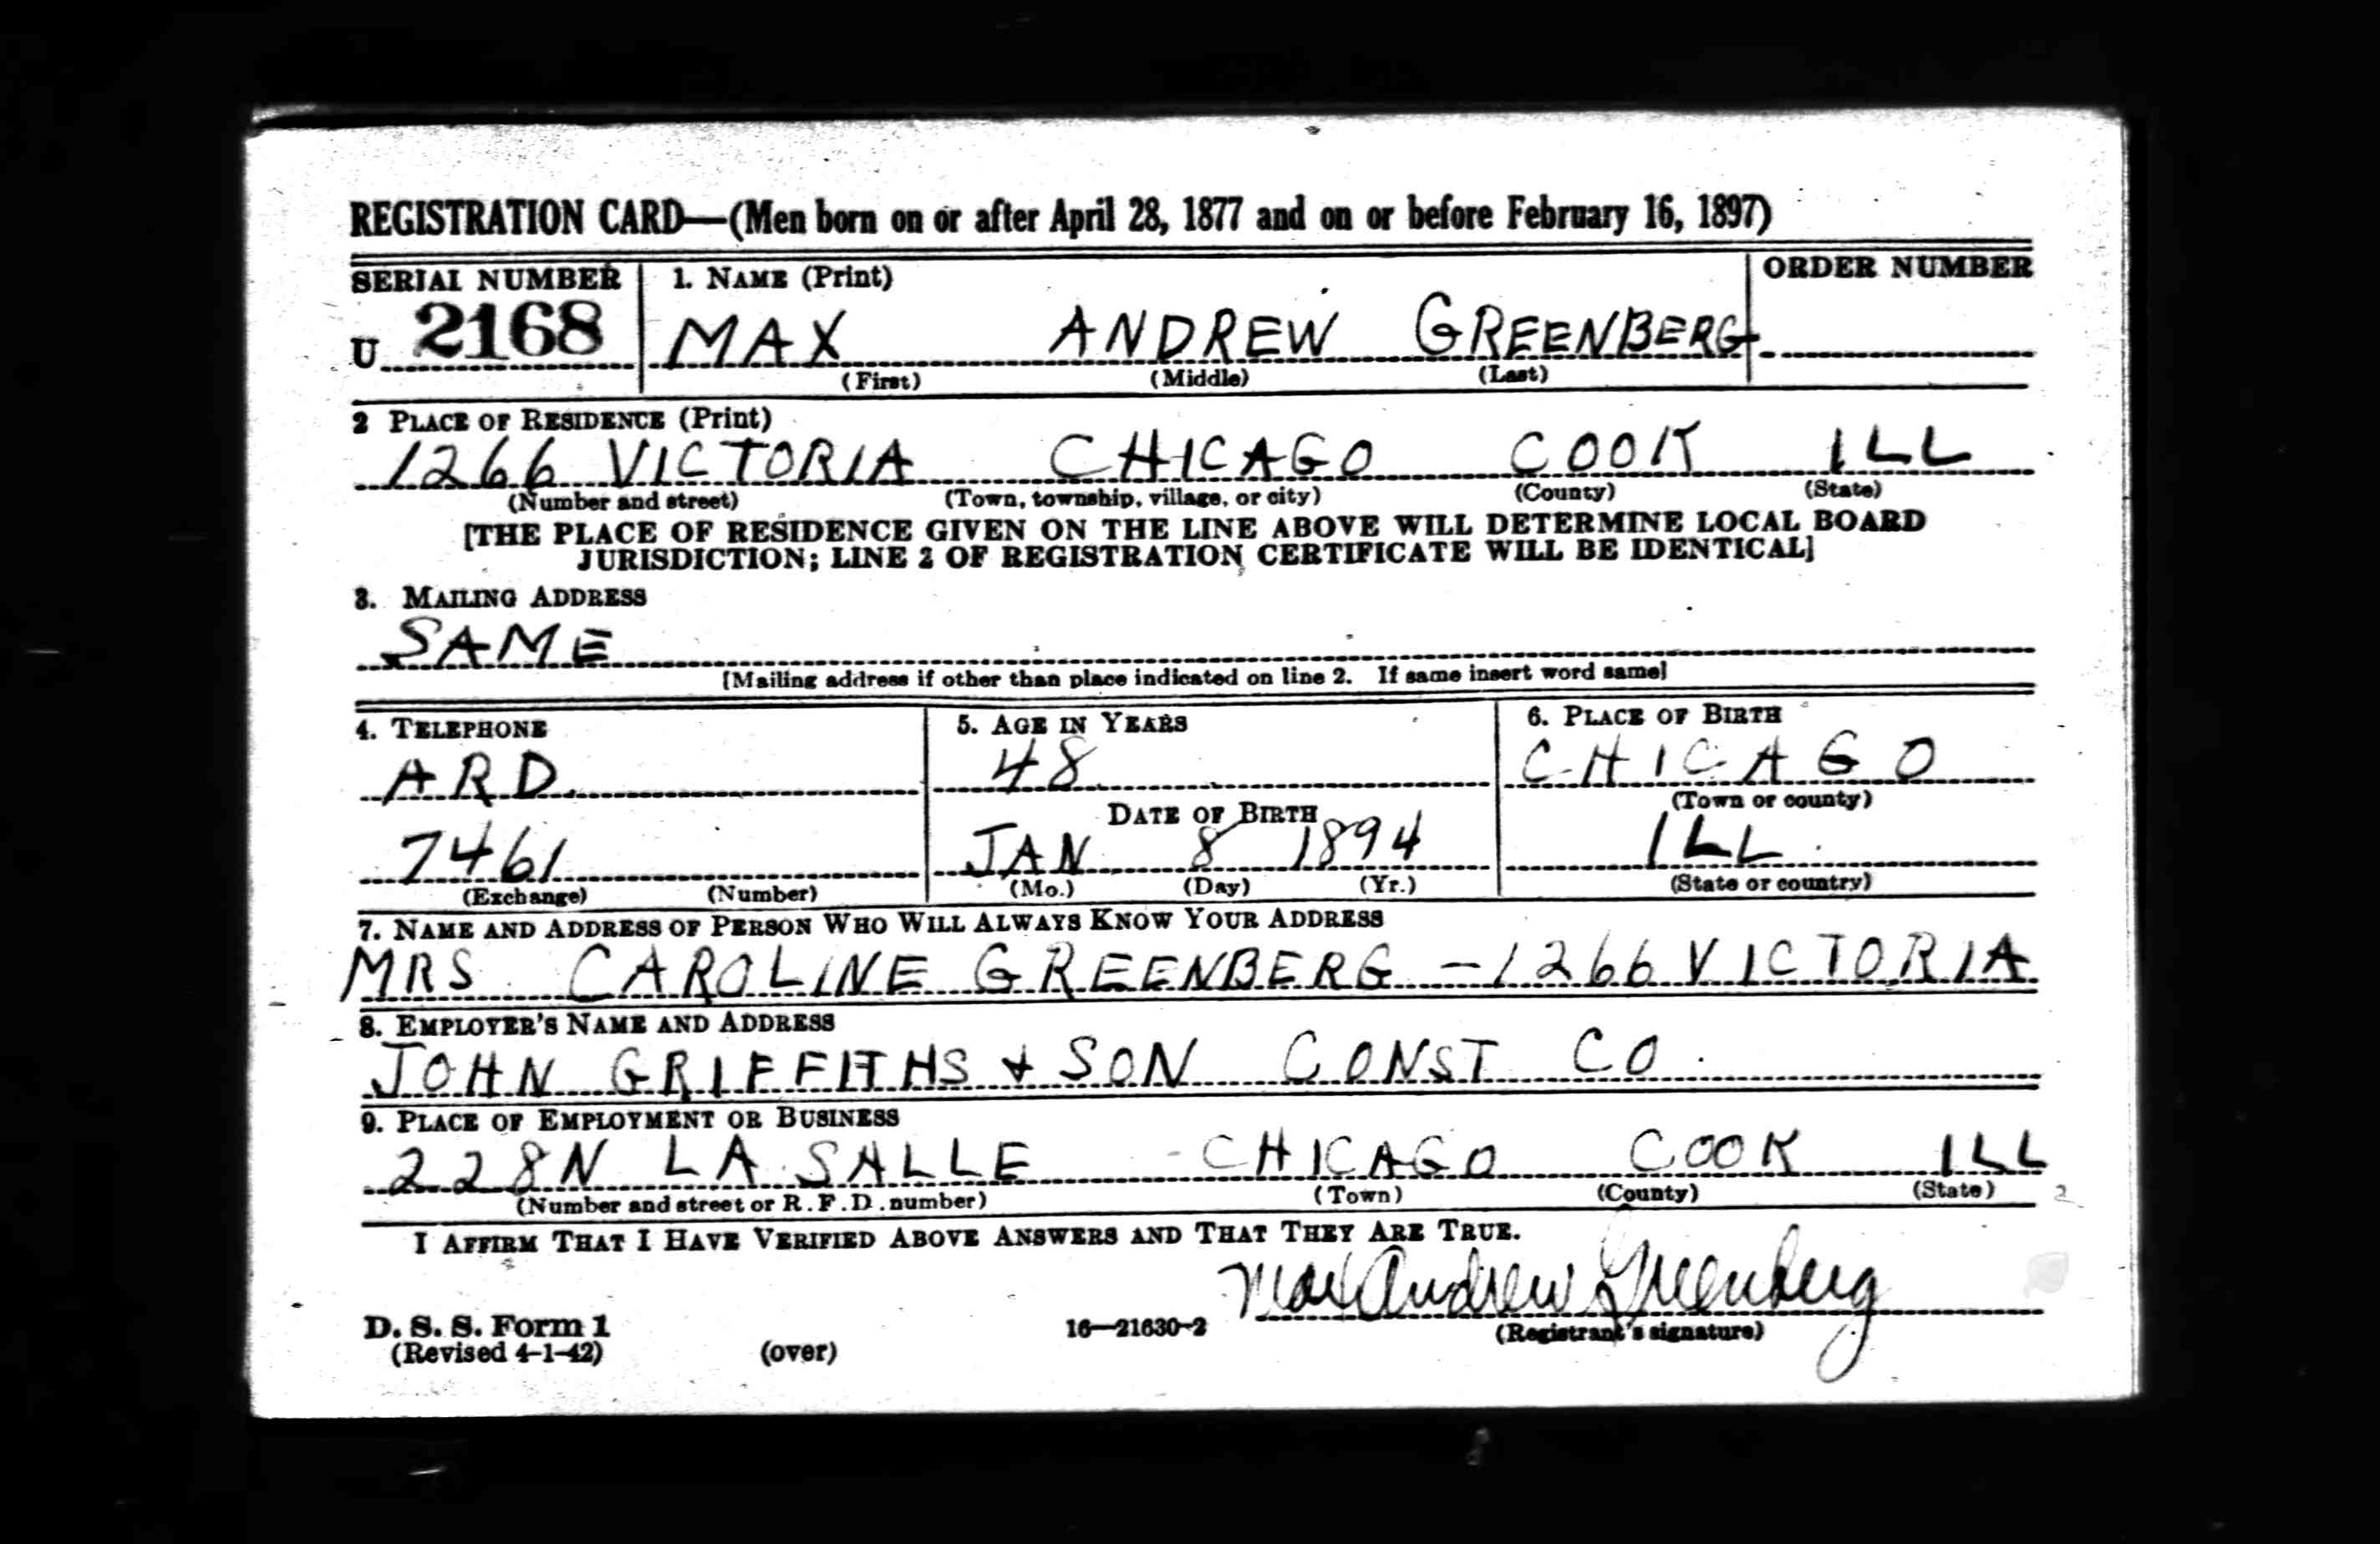 REGISTRATION CARD—(Men born on or after April 28, 1877 and on or before February 16, 1897)
SERIAL NUMBER 1. NAME (Print) ORDER NUMBER
U 2168 MAX ANDREW GREENBERG
(First) (Middle) (Last)
2 PLACE OF RESIDENCE (Print)
1266 VICTORIA CHICAGO COOK ILL
(Number and street) (Town, township, village, or city) (County) (State)
[THE PLACE OF RESIDENCE GIVEN ON THE LINE ABOVE WILL DETERMINE LOCAL BOARD
JURISDICTION; LINE 2 OF REGISTRATION CERTIFICATE WILL BE IDENTICAL]
3. MAILING ADDRESS
SAME
[Mailing address if other than place indicated on line 2. If same insert word same]
4. TELEPHONE 5. AGE IN YEARS 6. PLACE OF BIRTH
ARD. 48 CHICAGO
DATE OF BIRTH (Town or county)
7461 JAN 8 1894 ILL.
(Exchange) (Number) (Mo.) (Day) (Yr.) (State or country)
7. NAME AND ADDRESS OF PERSON WHO WILL ALWAYS KNOW YOUR ADDRESS
MRS. CAROLINE GREENBERG - 1266 VICTORIA
8. EMPLOYER'S NAME AND ADDRESS
JOHN GRIFFITHS & SON CONST CO.
9. PLACE OF EMPLOYMENT OR BUSINESS
228 N LA SALLE CHICAGO COOK ILL
(Number and street or R. F. D. number) (Town) (County) (State) 2
I AFFIRM THAT I HAVE VERIFIED ABOVE ANSWERS AND THAT THEY ARE TRUE.
Max Andrew Greenberg
D. S. S. Form 1 16—21630-2 (Registrant's signature)
(Revised 4-1-42) (over)